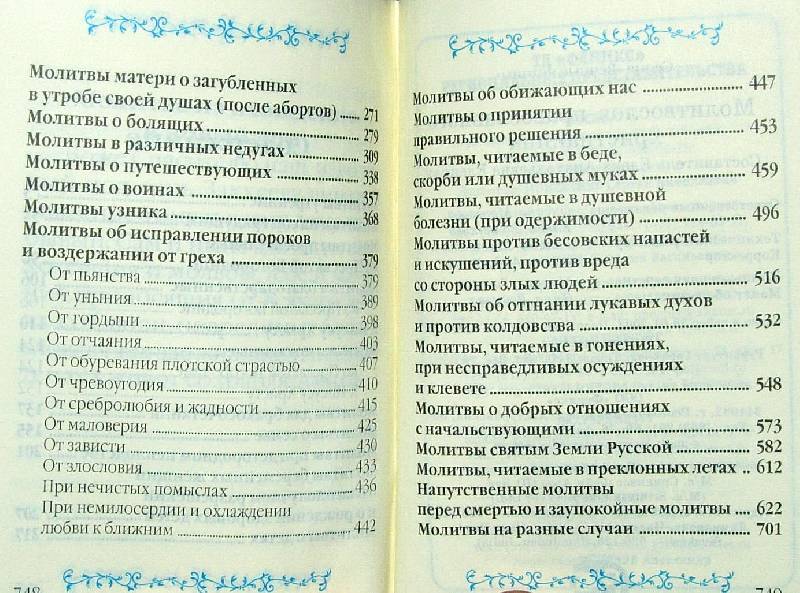 Молитвы матери о загубленных
в утробе своей душах (после абортов) ...... 271
Молитвы о болящих ...... 279
Молитвы в различных недугах ...... 309
Молитвы о путешествующих ...... 338
Молитвы о воинах ...... 357
Молитвы узника ...... 368
Молитвы об исправлении пороков
и воздержании от греха ...... 379
От пьянства ...... 379
От уныния ...... 389
От гордыни ...... 398
От отчаяния ...... 403
От обуревания плотской страстью ...... 407
От чревоугодия ...... 410
От сребролюбия и жадности ...... 415
От маловерия ...... 425
От зависти ...... 430
От злословия ...... 433
При нечистых помыслах ...... 436
При немилосердии и охлаждении
любви к ближним ...... 442
748
Молитвы об обижающих нас ...... 447
Молитвы о принятии
правильного решения ...... 453
Молитвы, читаемые в беде,
скорби или душевных муках ...... 459
Молитвы, читаемые в душевной
болезни (при одержимости) ...... 496
Молитвы против бесовских напастей
и искушений, против вреда
со стороны злых людей ...... 516
Молитвы об отгнании лукавых духов
и против колдовства ...... 532
Молитвы, читаемые в гонениях,
при несправедливых осуждениях
и клевете ...... 548
Молитвы о добрых отношениях
с начальствующими ...... 573
Молитвы святым Земли Русской ...... 582
Молитвы, читаемые в преклонных летах .. 612
Напутственные молитвы
перед смертью и заупокойные молитвы ... 622
Молитвы на разные случаи ...... 701
749